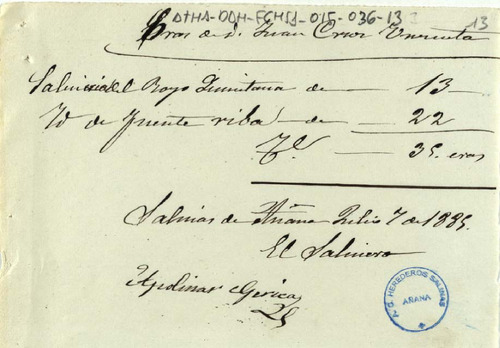 ATHA-DAH-FGHSA-015-036-13
13
Eras de D. Juan Cruz
Salinero del Royo Quintana de — 13
Yd de Fuente riba — de — 22
Tl. — 35. eras
Salinas de Añana Julio 7 de 1885.
El Salinero
Apolinar Gerica
A.G. HEREDEROS SALINAS
AÑANA